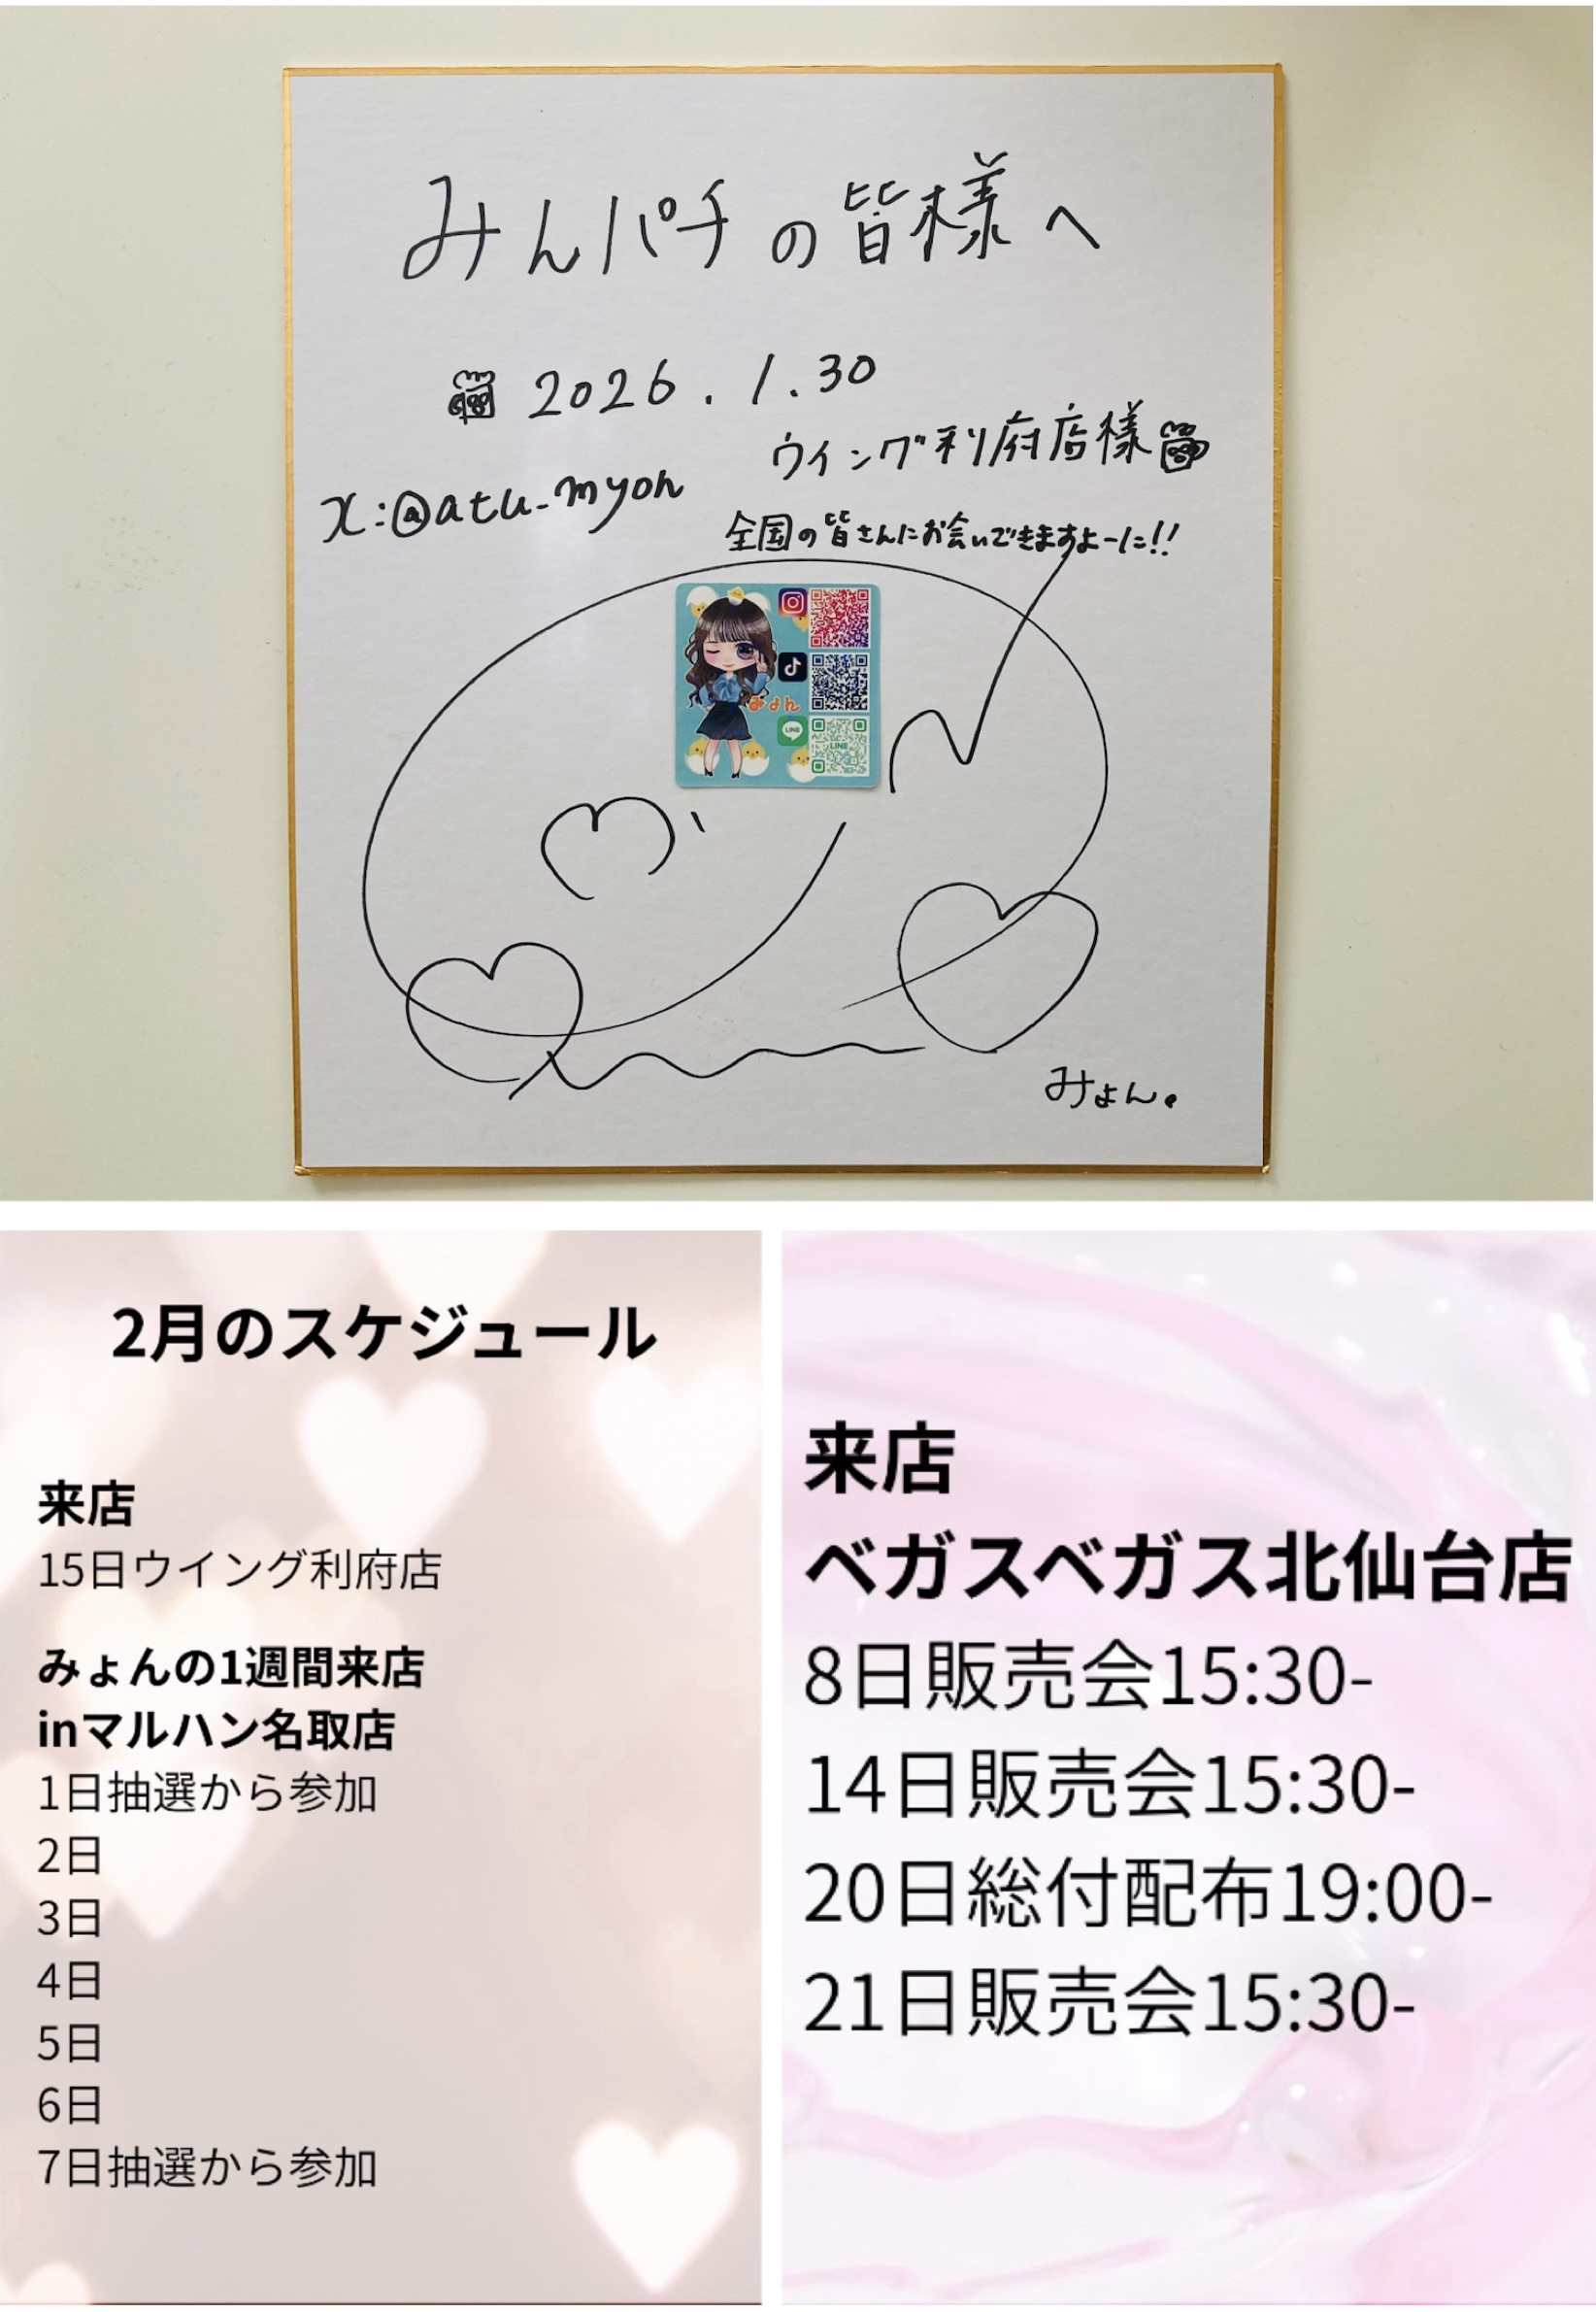 みんパチの皆様へ
2026.1.30
ウイング利府店様
X:@atu_myon
全国の皆さんにお会いできますよーに!!
みょん
LINE
LINE
みょん。
2月のスケジュール
来店
15日ウイング利府店
みょんの1週間来店
inマルハン名取店
1日抽選から参加
2日
3日
4日
5日
6日
7日抽選から参加
来店
ベガスベガス北仙台店
8日販売会15:30-
14日販売会15:30-
20日総付配布19:00-
21日販売会15:30-